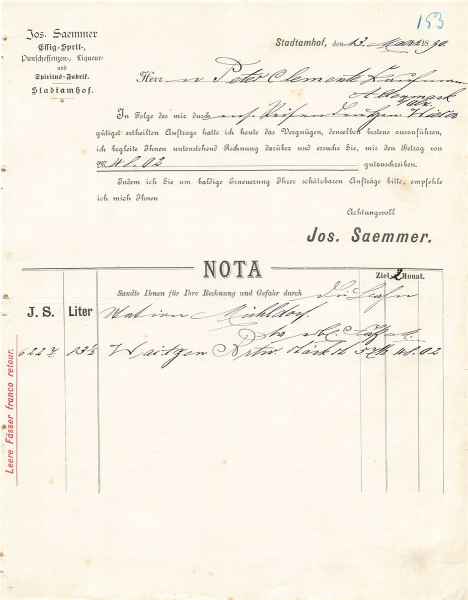 153
Jos. Saemmer
Essig-Sprit-,
Punschessenzen-, Liqueur-
und
Spiritus-Fabrik.
Stadtamhof.
Stadtamhof, den 13. März 1890
Herrn Peter Clemente Kaufmann
Altenmarkt
In Folge des mir durch Reisenden
gütigst ertheilten Auftrags hatte ich heute das Vergnügen, denselben bestens auszuführen,
ich begleite Ihnen untenstehend Rechnung darüber und ersuche Sie, mir den Betrag von
M 48.02 gutzuschreiben.
Indem ich Sie um baldige Erneuerung Ihrer schätzbaren Aufträge bitte, empfehle
ich mich Ihnen
Achtungsvoll
Jos. Saemmer.
NOTA
Ziel 2 Monat.
Sandte Ihnen für Ihre Rechnung und Gefahr durch die Bahn
J. S. Liter Station Mühldorf
6227 83½ Waitzen 48.02
Leere Fässer franco retour.